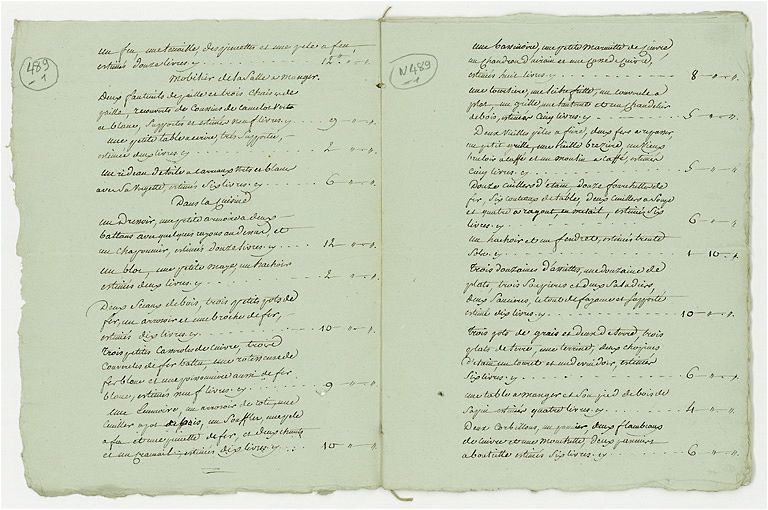 489
1
un feu, une tenailles, des pincettes et une pele a feu,
estimés douze livres. cy 12 " "
Mobilier de la Salle a Manger.
Deux fauteuils de paille et trois chaises de
paille, recouverts de Coussins de camelot verts
et blanc, Supportés et estimés neuf livres. cy 9 " "
une petite table a ecrire, très Supportée,
estimée deux livres. cy 2 " "
un rideau de toile a carraux verts et blanc
avec Sa Vergette, estimés Six livres. cy 6 " "
Dans la Cuisine
un Dressoir, une petite armoire a deux
battans avec quelques rayons au dessus, et
un chaponnier, estimés douze livres. cy 12 " "
un bloc, une petite maye, un hachoir
estimés deux livres. cy 2 " "
Deux Seaux de bois, trois petits pots de
fer, un arrosoir et une broche de fer,
estimés dix livres. cy 10 " "
Trois petites Casseroles de Cuivre, trois
Couvercles de fer battu, une rotisseuse de
fer blanc et une poissonniere aussi de fer
blanc, estimés neuf livres. cy 9 " "
une un arrosoir de
cuiller a pot de bois, un Soufflet, une pele
a feu et une pincette de fer, et deux chenets
et un estimés dix livres. cy 10 " "
N 489
1
une bassinoire, une petite marmitte de Cuivre
un chandron d'airain et une de Cuivre,
estimés huit livres. cy 8 " "
une tourtiere, une lichefritte, un couvercle a
plat, un grille, une et un chandelier
de bois, estimés Cinq livres. cy 5 " "
Deux vieilles pêles a frire, deux fers a repasser
un petit grille, une vieille braziere, un vieux
bruloir a caffé et un moulin a caffé, estimés
Cinq livres. cy 5 " "
Douze cuillers d'étain, douze fourchettes de
fer, Six couteaux de table, deux cuillers a Soupe
et quatre a ragout, en métail, estimés Six
livres. cy 6 " "
un hachoir et un fendret, estimés trente
Sols. cy 1 10 "
Trois douzaines d'assiettes, une douzaine de
plats, trois Soupieres et deux Saladiers,
deux Saucieres, le tout de fayance et Supporté
estimés dix livres. cy 10 " "
Trois pots de grais et deux de terre, trois
plats de terre, une terrine, deux
d'étain, un et un devidoir, estimés
Six livres. cy 6 " "
une table a manger et Son pied de bois de
Sapin estimés quatre livres. cy 4 " "
Deux Corbillons, un panier, deux flambeaux
de Cuivre et une Mouchette, deux paniers
a bouteille estimés Six livres. cy 6 " "